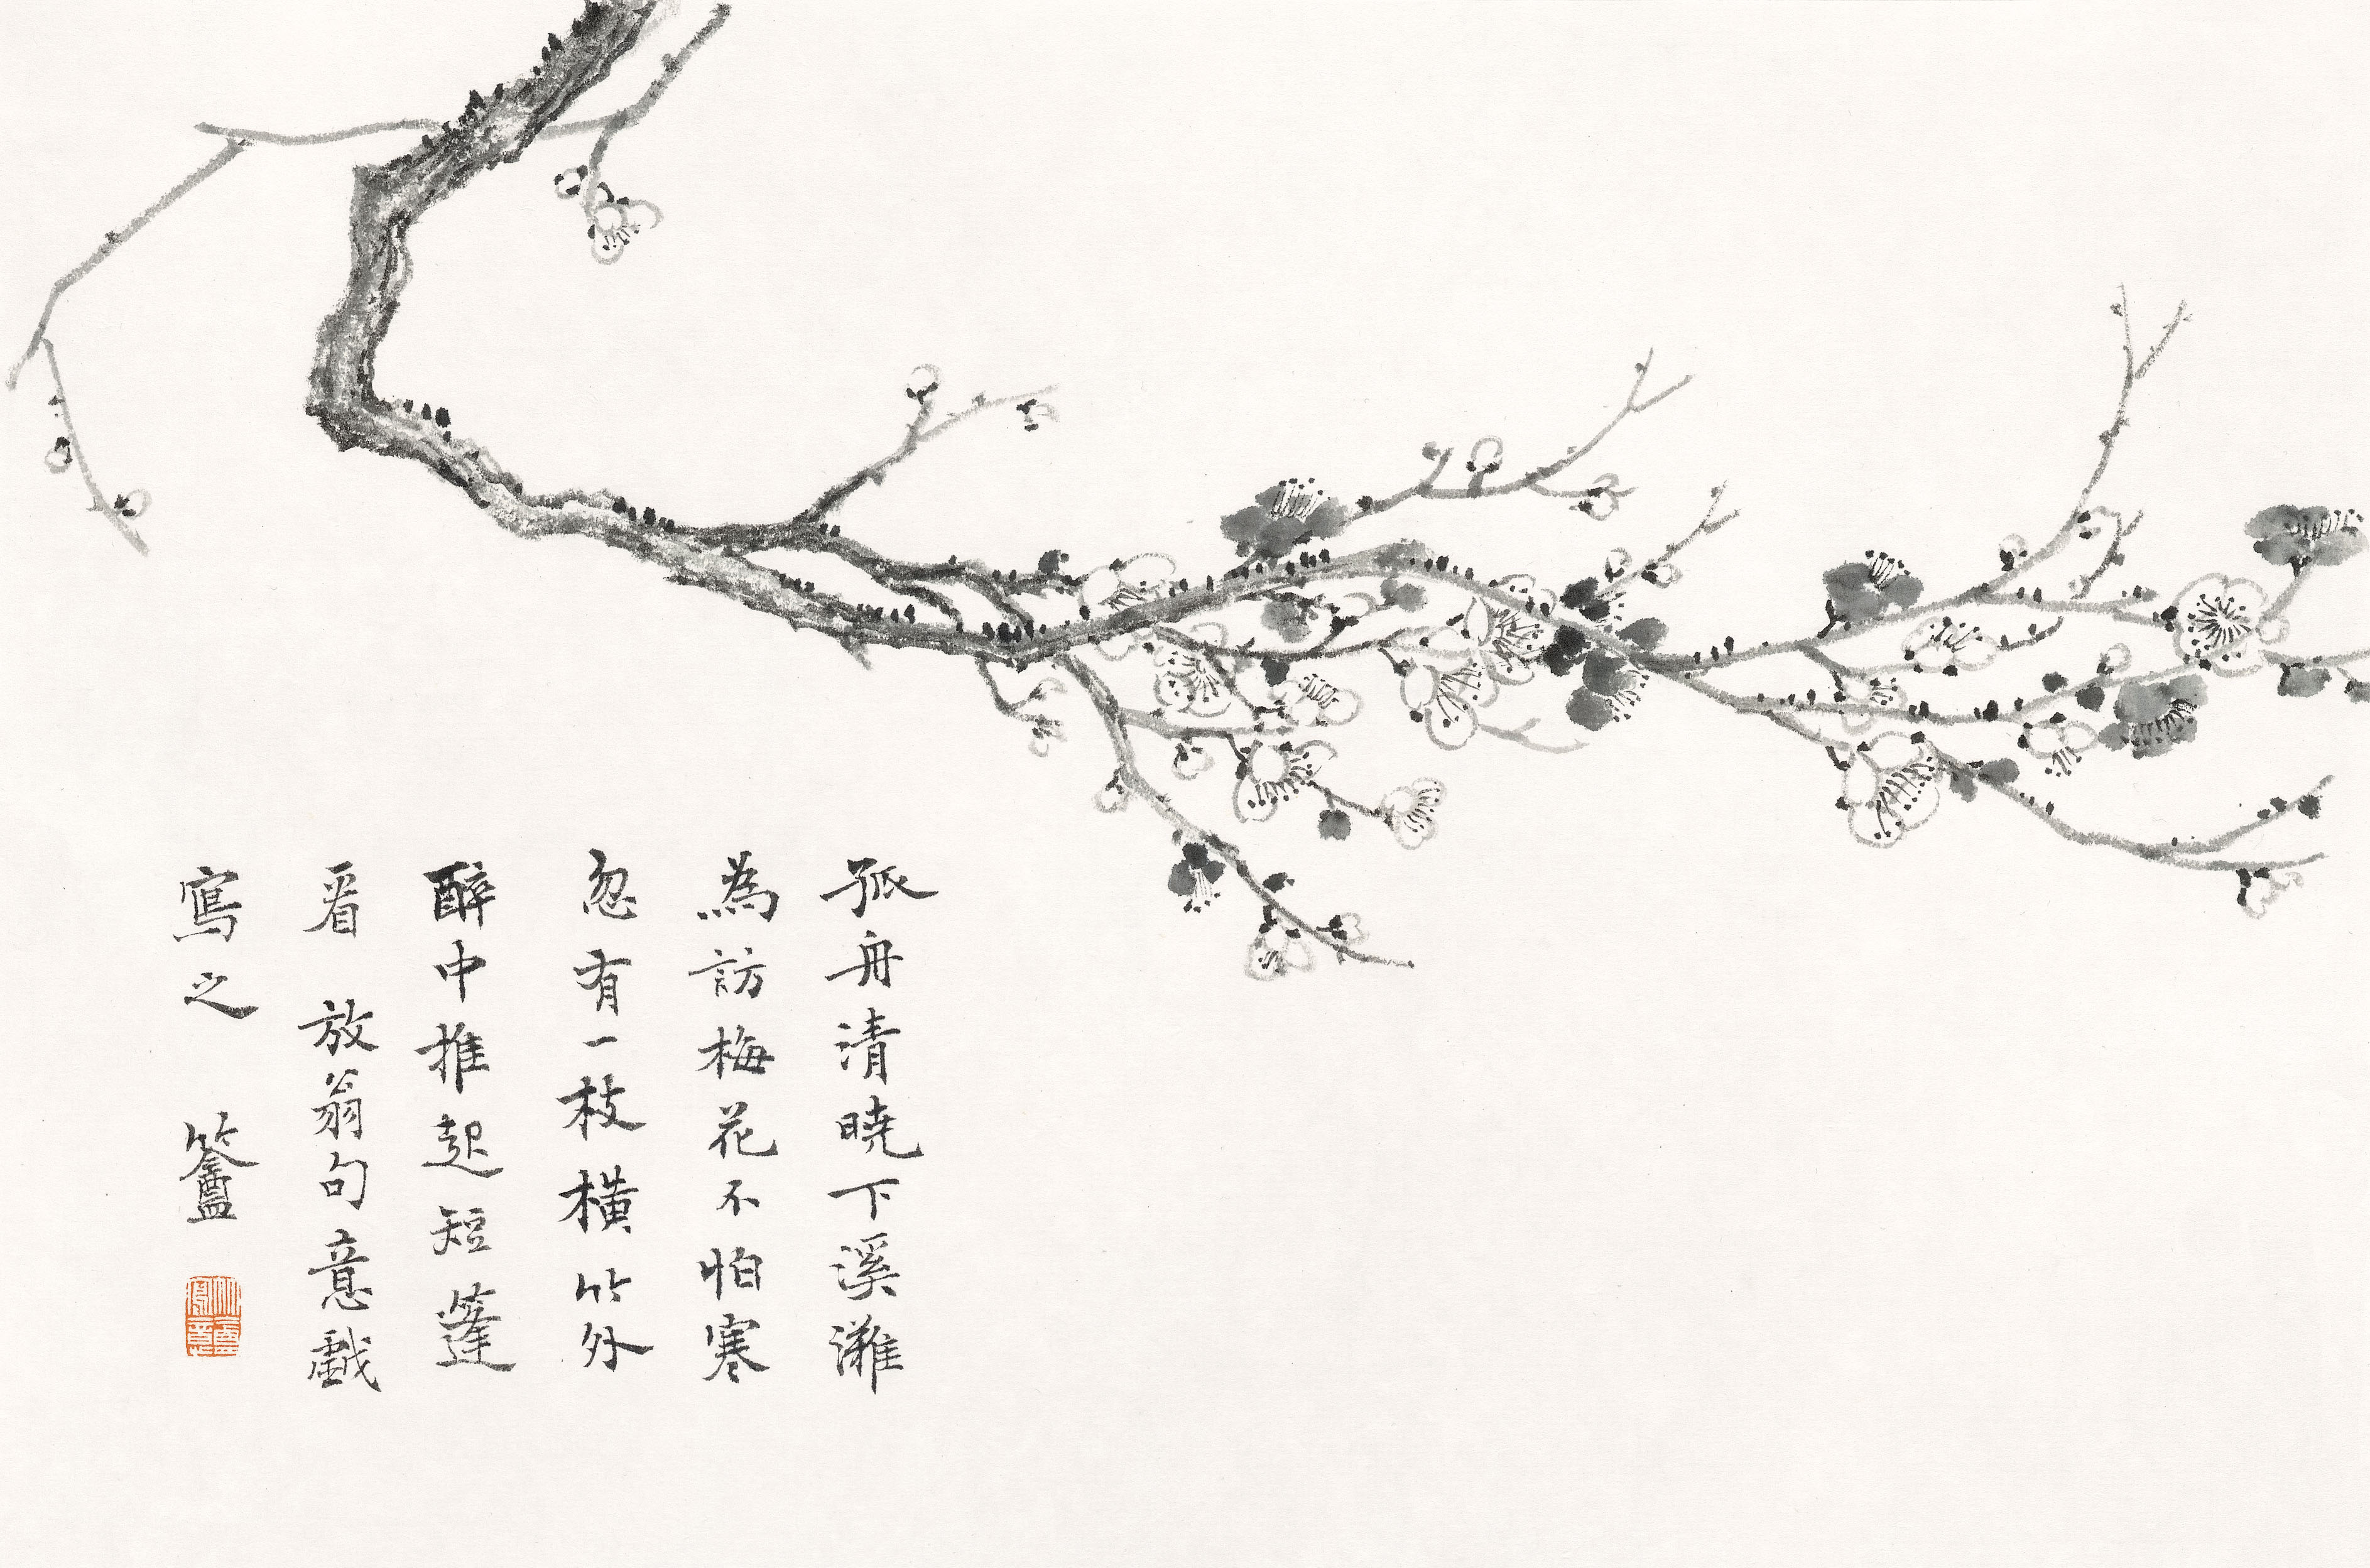 孤舟清曉下溪灘
為訪梅花不怕寒
忽有一枝橫竹外
醉中推起短篷
看 放翁句意戲
寫之